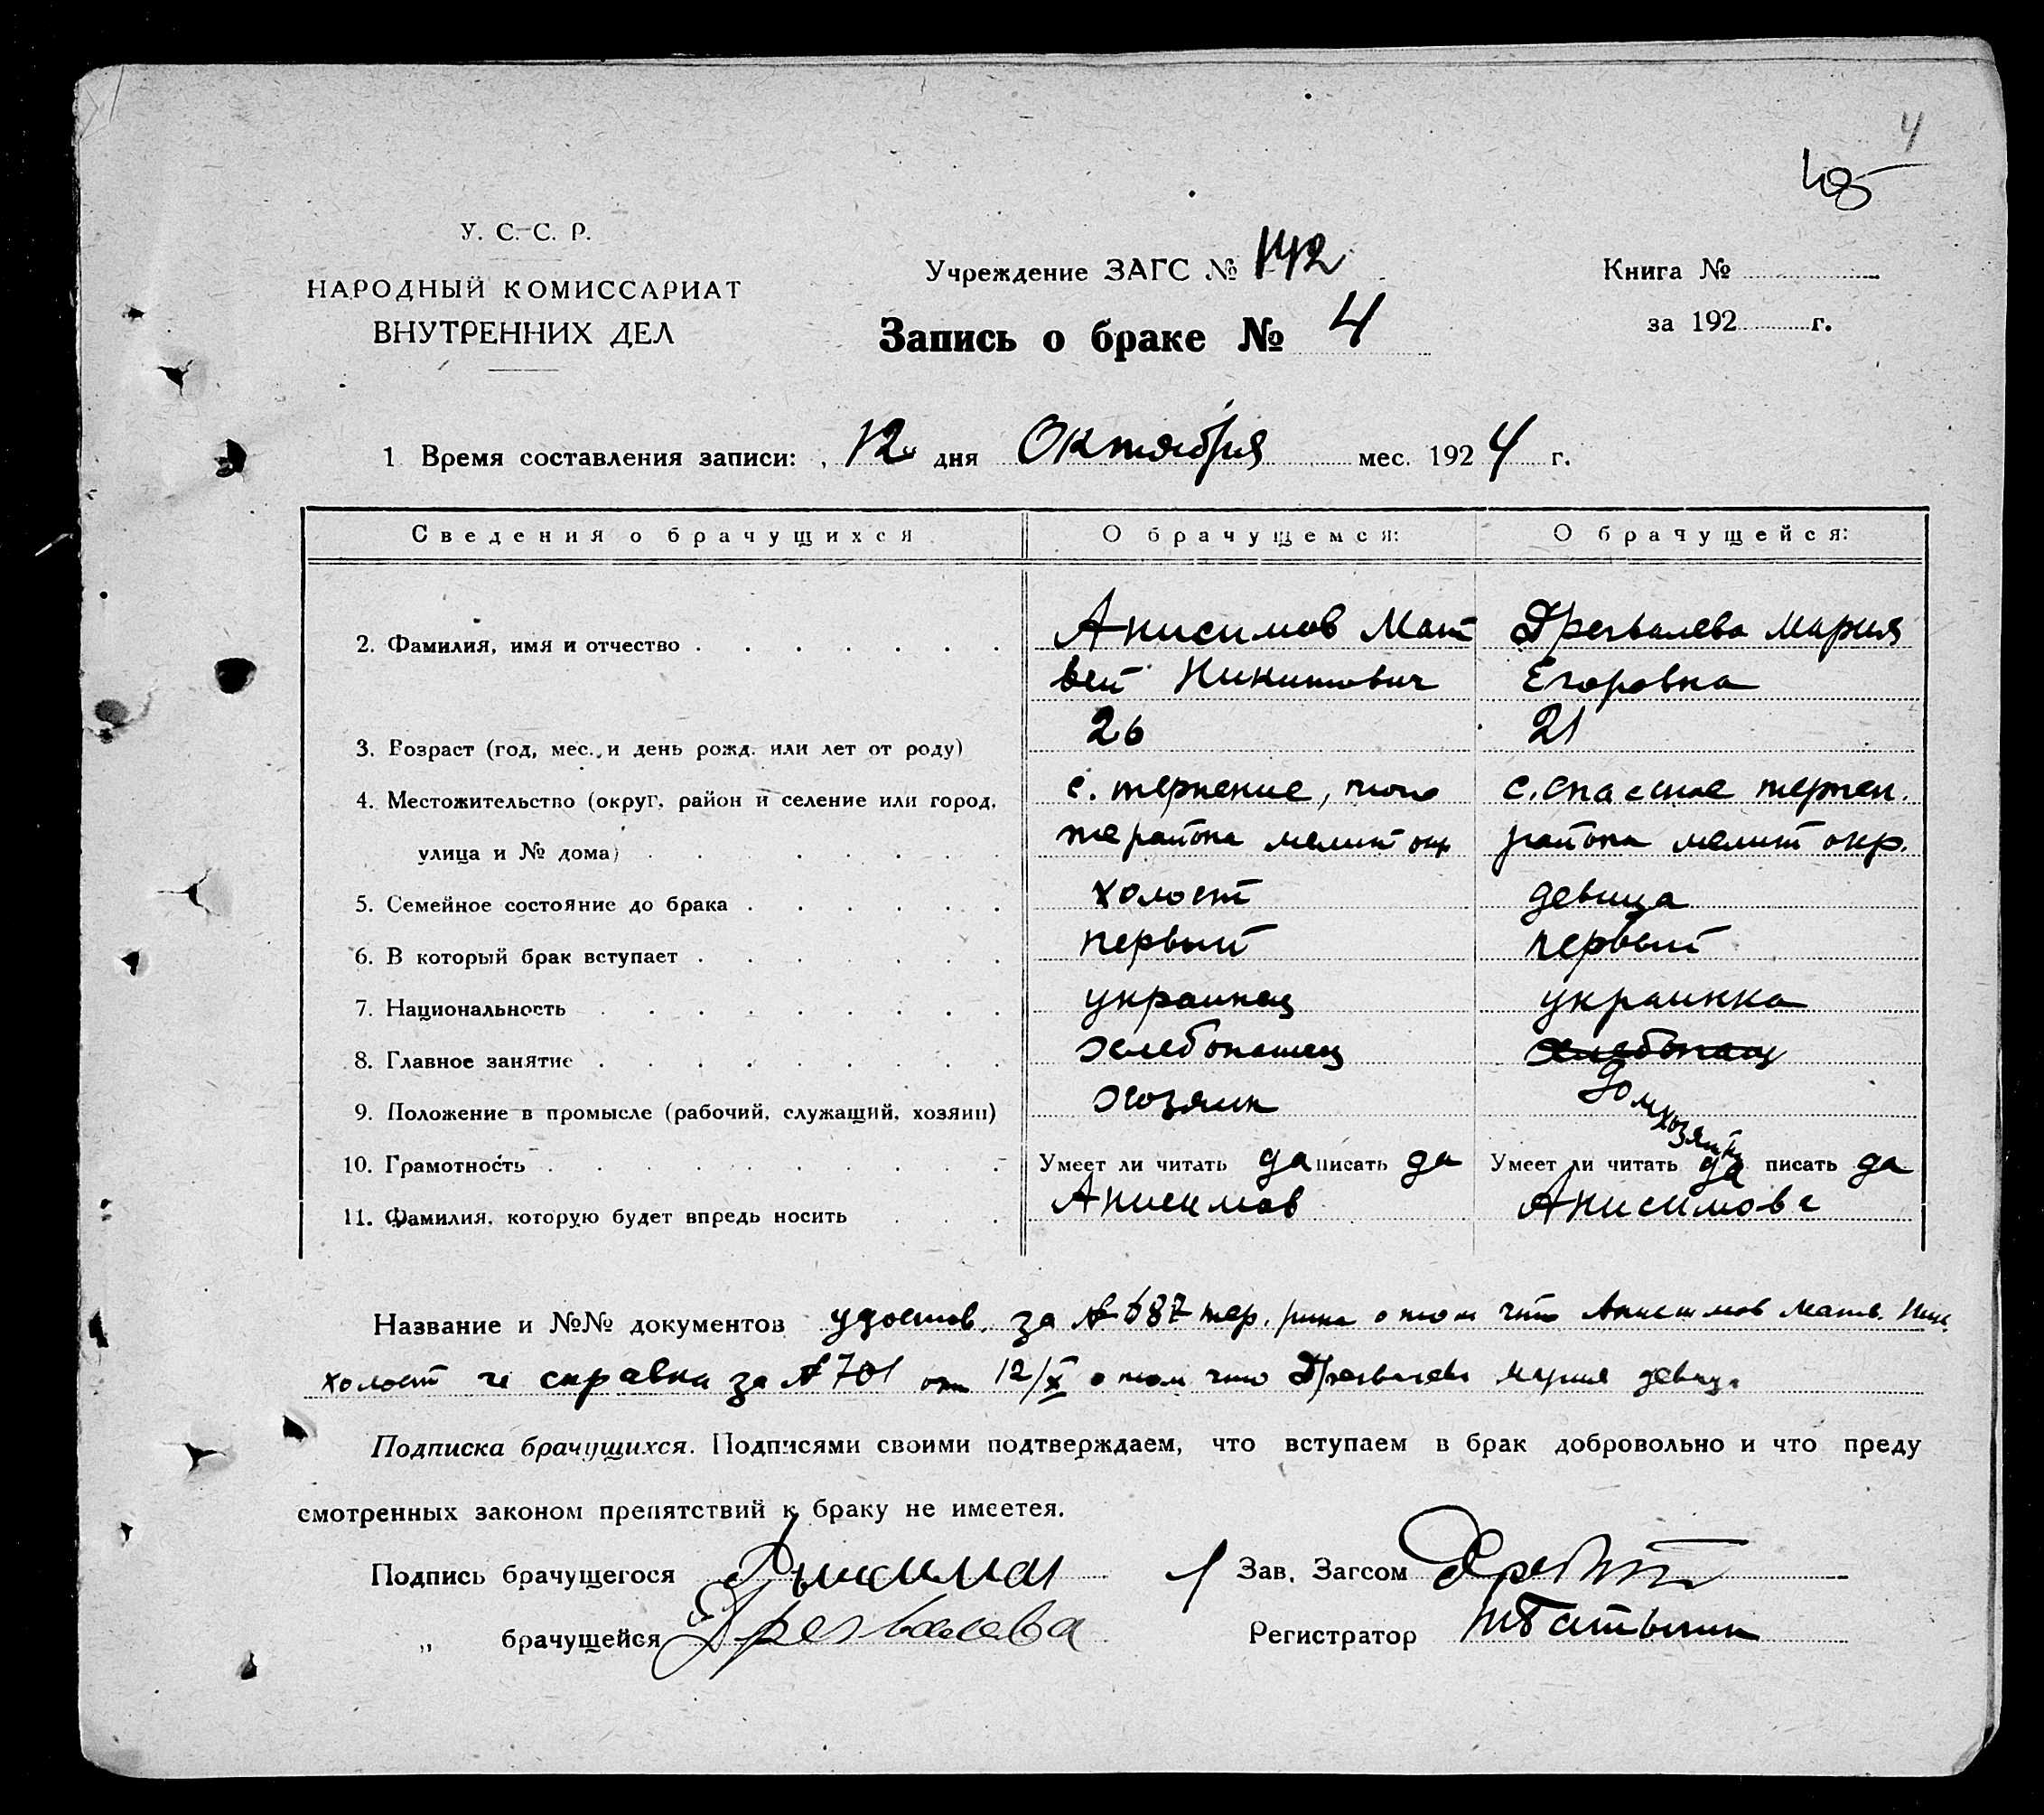 4
У. С. С. Р.
НАРОДНЫЙ КОМИССАРИАТ
ВНУТРЕННИХ ДЕЛ
Учреждение ЗАГС № 142
Запись о браке № 4
Книга №
за 192 г.
1 Время составления записи: 12 дня Октября мес. 1924 г.
Сведения о брачущихся О брачущемся: О брачущейся:
2. Фамилия, имя и отчество Анисимов Мат Дрегвалева Мария
вей Никитович Егоровна
3. Возраст (год, мес. и день рожд. или лет от роду) 26 21
4. Местожительство (округ, район и селение или город, с. терпение, того с. спасское терпен.
улица и № дома) же района мелит окр района мелит окр.
5. Семейное состояние до брака холост девица
6. В который брак вступает первый первый
7. Национальность украинец украинка
8. Главное занятие хлебопашец хлебопащ
9. Положение в промысле (рабочий, служащий, хозяин) хозяин домхозяйка
10. Грамотность Умеет ли читать да писать да Умеет ли читать да писать да
11. Фамилия, которую будет впредь носить Анисимов Анисимова
Название и №№ документов удостов. за № 687 тер. рика о том что Анисимов Матв. Ник.
холост и справка за № 701 от 12/X о том что Дрегвалева Мария девица
Подписка брачущихся. Подписями своими подтверждаем, что вступаем в брак добровольно и что преду
смотренных законом препятствий к браку не имеется.
Подпись брачущегося Зав. Загсом
„ брачущейся Дрегвалева Регистратор